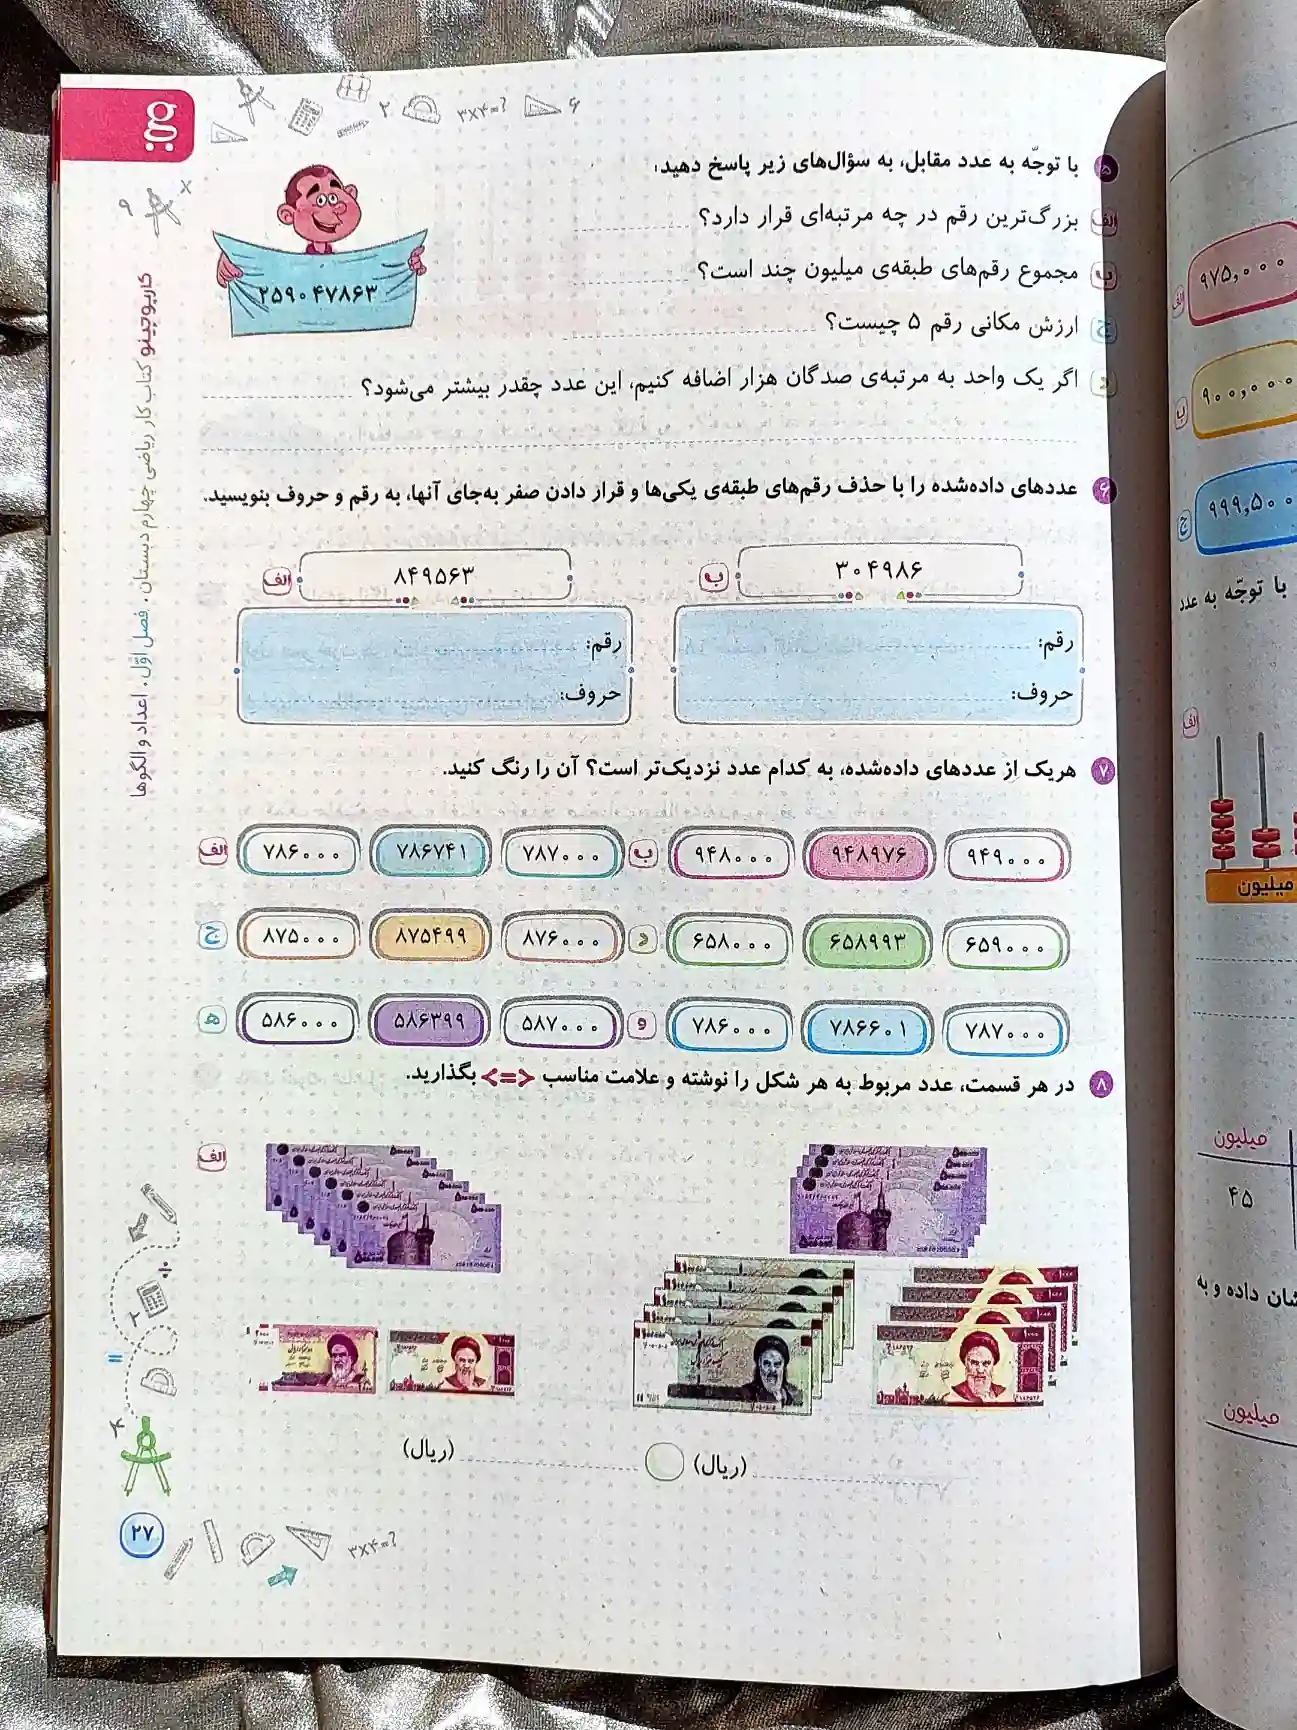 ۵ با توجّه به عدد مقابل، به سؤال‌های زیر پاسخ دهید:
۲۵۹۰۴۷۸۶۳
الف بزرگ‌ترین رقم در چه مرتبه‌ای قرار دارد؟
ب مجموع رقم‌های طبقه‌ی میلیون چند است؟
ج ارزش مکانی رقم ۵ چیست؟
د اگر یک واحد به مرتبه‌ی صدگان هزار اضافه کنیم، این عدد چقدر بیشتر می‌شود؟
۶ عددهای داده‌شده را با حذف رقم‌های طبقه‌ی یکی‌ها و قرار دادن صفر به‌جای آنها، به رقم و حروف بنویسید.
الف ۸۴۹۵۶۳
رقم:
حروف:
ب ۳۰۴۹۸۶
رقم:
حروف:
۷ هریک از عددهای داده‌شده، به کدام عدد نزدیک‌تر است؟ آن را رنگ کنید.
الف ۷۸۶۰۰۰ ۷۸۶۷۴۱ ۷۸۷۰۰۰ ب ۹۴۸۰۰۰ ۹۴۸۹۷۶ ۹۴۹۰۰۰
ج ۸۷۵۰۰۰ ۸۷۵۴۹۹ ۸۷۶۰۰۰ د ۶۵۸۰۰۰ ۶۵۸۹۹۳ ۶۵۹۰۰۰
ه ۵۸۶۰۰۰ ۵۸۶۳۹۹ ۵۸۷۰۰۰ و ۷۸۶۰۰۰ ۷۸۶۶۰۱ ۷۸۷۰۰۰
۸ در هر قسمت، عدد مربوط به هر شکل را نوشته و علامت مناسب <=> بگذارید.
الف
(ریال)
(ریال)
۲ ۳×۴=? ۶
۹ x
کارپوچینو کتاب کار ریاضی چهارم دبستان . فصل اوّل . اعداد و الگوها
÷
۲
=
۴
۲۷
۳×۴=?
الف ۹۷۵,۰۰۰
ب ۹۰۰,۰۰۰
ج ۹۹۹,۵۰۰
با توجّه به عدد
الف
میلیون
میلیون
۴۵
شان داده و به
میلیون